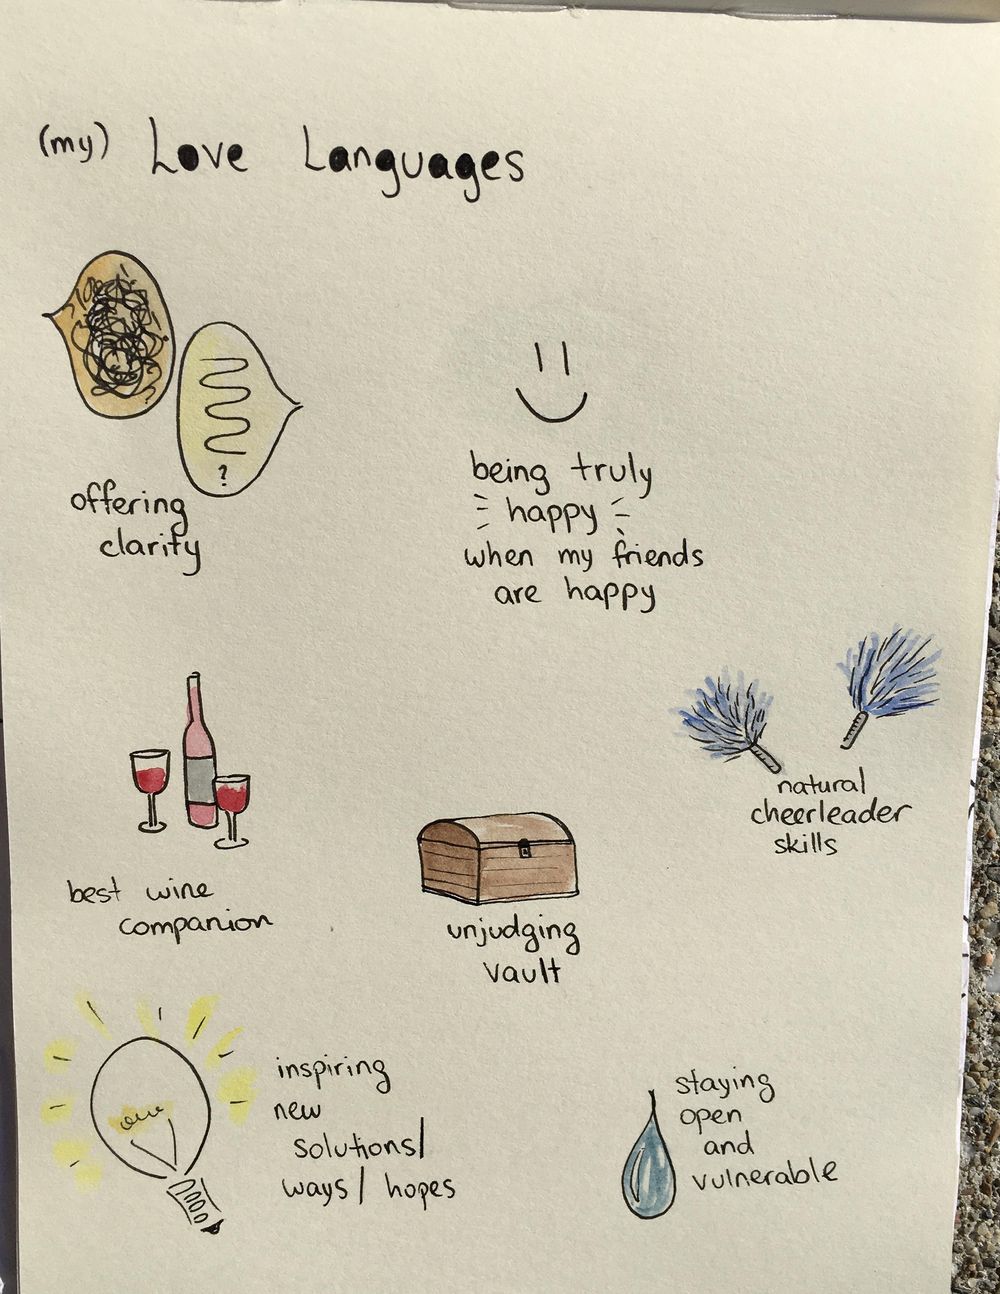 (my) Love Languages
?
offering
clarity
being truly
happy
when my friends
are happy
natural
cheerleader
skills
best wine
companion
unjudging
vault
inspiring
new
solutions/
ways/ hopes
staying
open
and
vulnerable